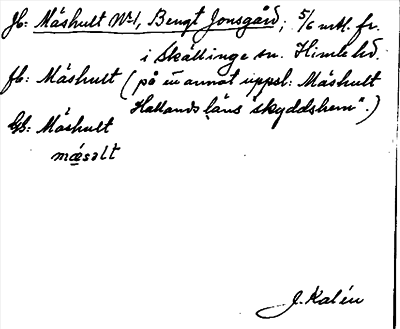 Jb: Måshult No 1, Bengt Jonsgård; 5/6 mtl. fr.
i Skällinge sn. Himle hd.
fb: Måshult (på en annat uppsl: Måshult
Hallands läns "skyddshem".)
Gb: Måshult
mǽsalt
J. Kalén